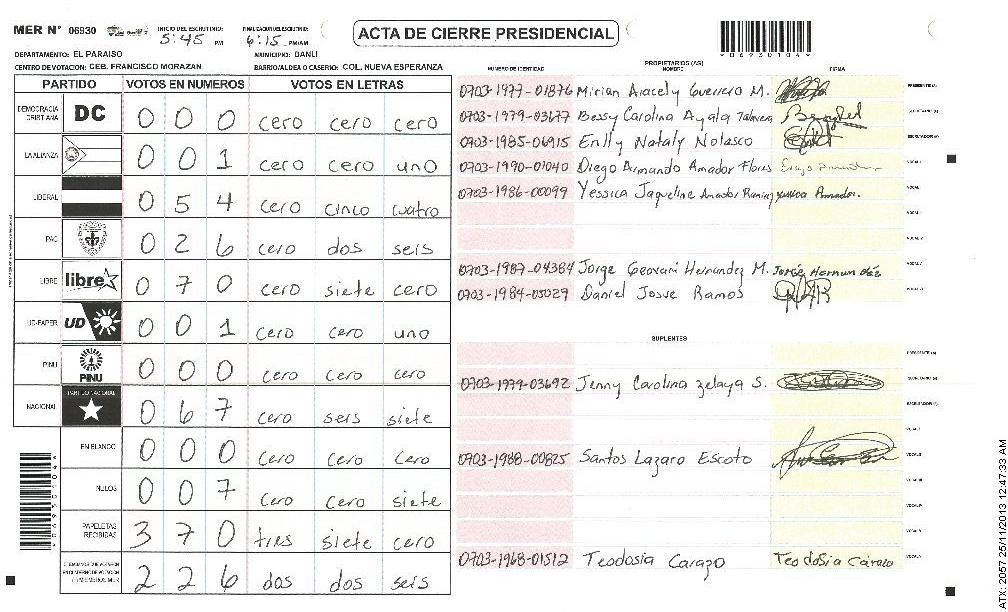 MER N° 06930 INICIO DEL ESCRUTINIO: 5:45 PM FINALIZACION DEL ESCRUTINIO: 6:15 PM/AM
ACTA DE CIERRE PRESIDENCIAL
*06930104*
DEPARTAMENTO: EL PARAISO MUNICIPIO: DANLI
CENTRO DE VOTACION: CEB. FRANCISCO MORAZAN BARRIO/ALDEA O CASERIO: COL. NUEVA ESPERANZA
PARTIDO VOTOS EN NUMEROS VOTOS EN LETRAS
DEMOCRACIA CRISTIANA DC 0 0 0 cero cero cero
LA ALIANZA 0 0 1 cero cero uno
LIBERAL 0 5 4 cero cinco cuatro
PAC 0 2 6 cero dos seis
LIBRE libre 0 7 0 cero siete cero
UD-FAPER UD 0 0 1 cero cero uno
PINU PINU 0 0 0 cero cero cero
NACIONAL PARTIDO NACIONAL 0 6 7 cero seis siete
EN BLANCO 0 0 0 cero cero cero
NULOS 0 0 7 cero cero siete
PAPELETAS RECIBIDAS 3 7 0 tres siete cero
2 2 6 dos dos seis
NUMERO DE IDENTIDAD PROPIETARIOS (AS) NOMBRE FIRMA
0703-1977-01876 Mirian Aracely Guerrero M. PRESIDENTE (A)
0703-1979-03177 Bessy Carolina Ayala Talavera SECRETARIO (A)
0703-1985-06915 Enlly Nataly Nolasco ESCRUTADOR (A)
0703-1990-01040 Diego Armando Amador Flores VOCAL I
0703-1986-00099 Yessica Jaqueline Amador Ramirez Yessica Amador. VOCAL
VOCAL
VOCAL
0703-1987-04384 Jorge Geovani Hernandez M. Jorge Hernandez VOCAL
0703-1984-05029 Daniel Josue Ramos VOCAL
SUPLENTES
PRESIDENTE (A)
0703-1979-03692 Jenny Carolina Zelaya S. SECRETARIO (A)
ESCRUTADOR (A)
VOCAL I
0703-1988-00825 Santos Lazaro Escoto VOCAL II
VOCAL III
VOCAL
VOCAL
0703-1968-01512 Teodosia Carazo Teodosia Carazo VOCAL
ATX: 2057 25/11/2013 12:47:33 AM